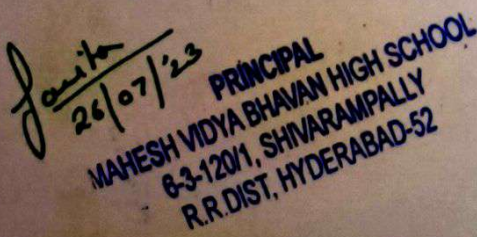 26/07/'23
PRINCIPAL
MAHESH VIDYA BHAVAN HIGH SCHOOL
6-3-120/1, SHIVARAMPALLY
R.R.DIST, HYDERABAD-52